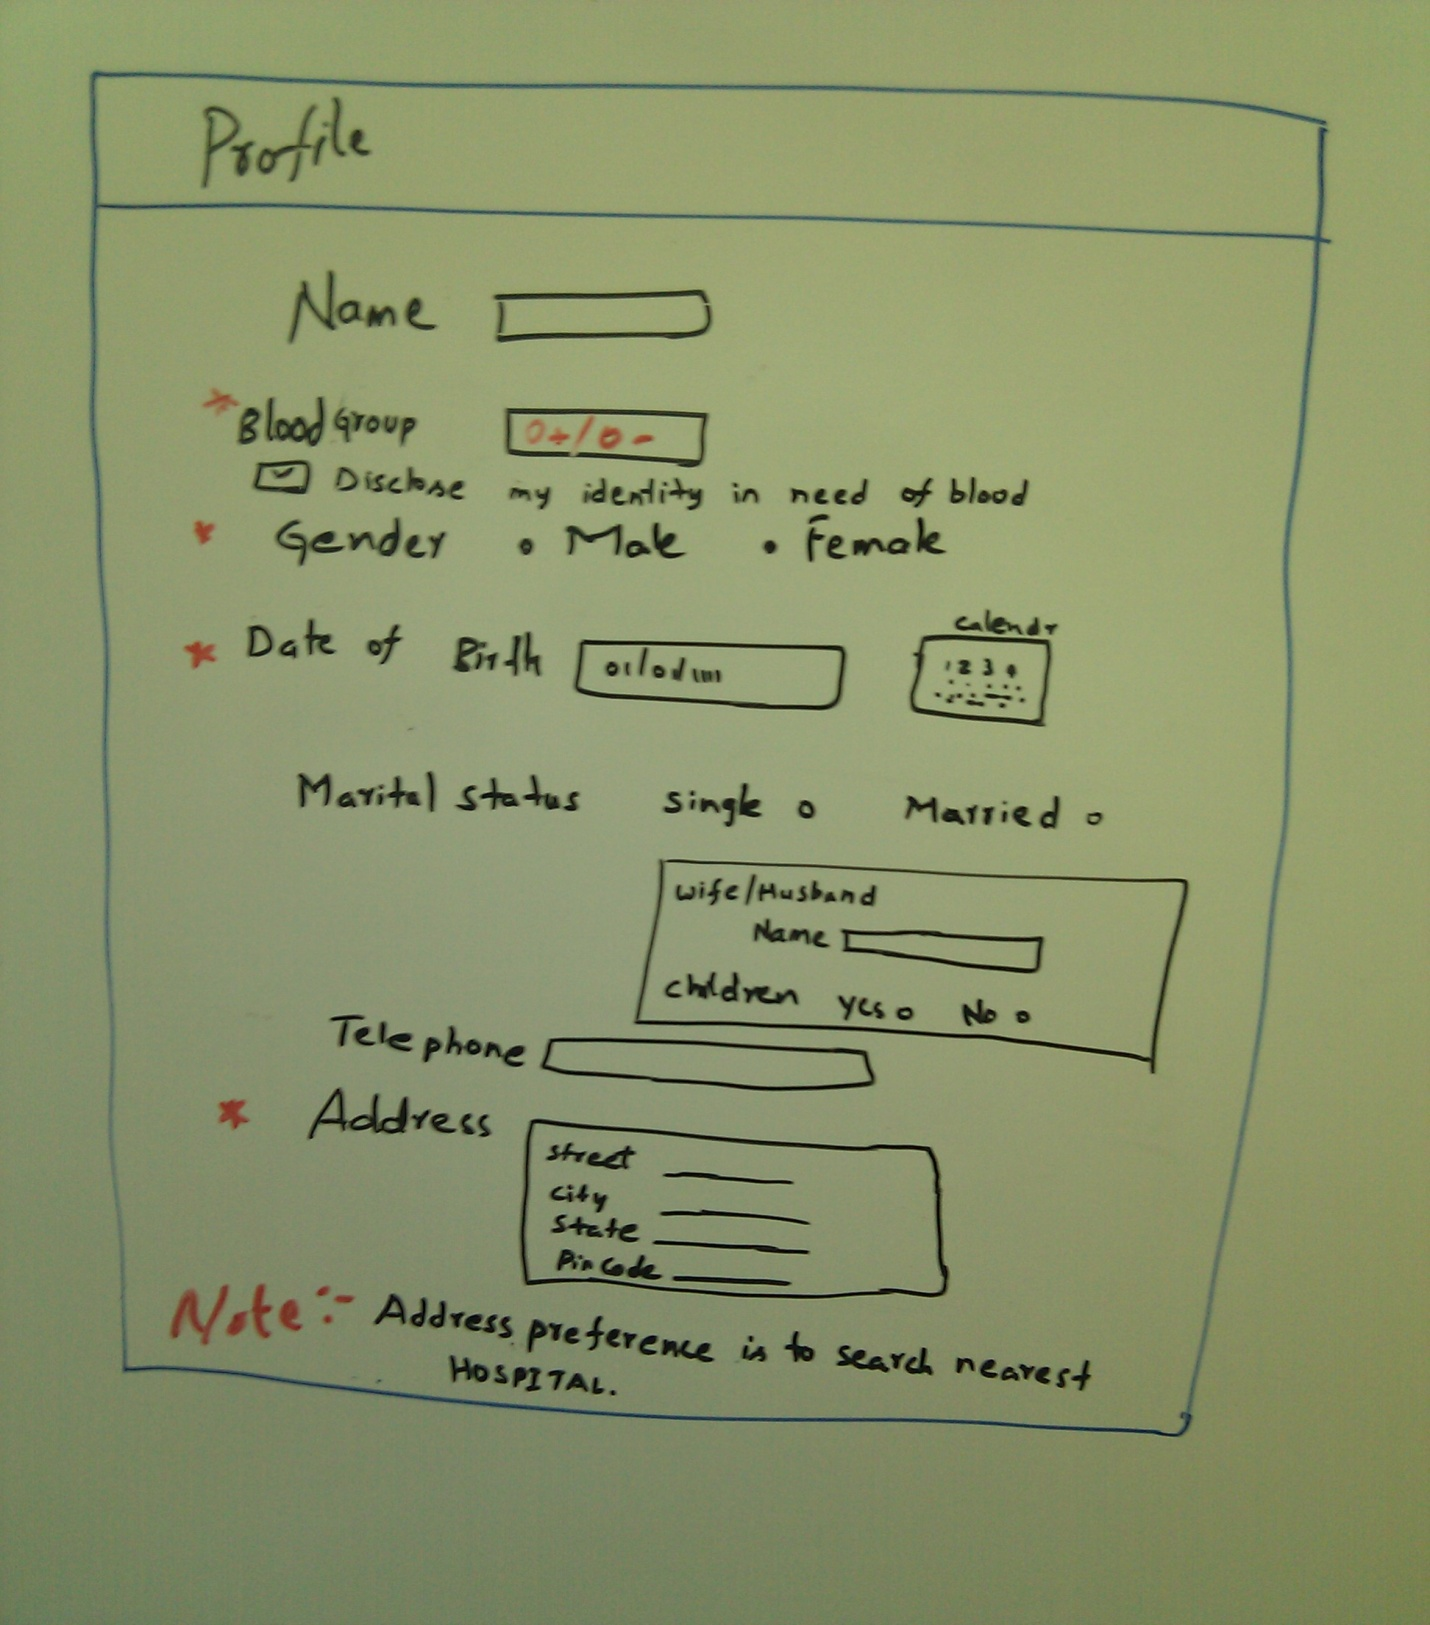 Profile
Name
* Blood Group O+/O-
Disclose my identity in need of blood
* Gender • Male • Female
* Date of Birth 01/01/1111
calendr
1 2 3 4
Marital Status Single o Married o
Wife/Husband
Name
children Yes o No o
Telephone
* Address
Street
City
State
Pin Code
Note:- Address preference is to search nearest
HOSPITAL.